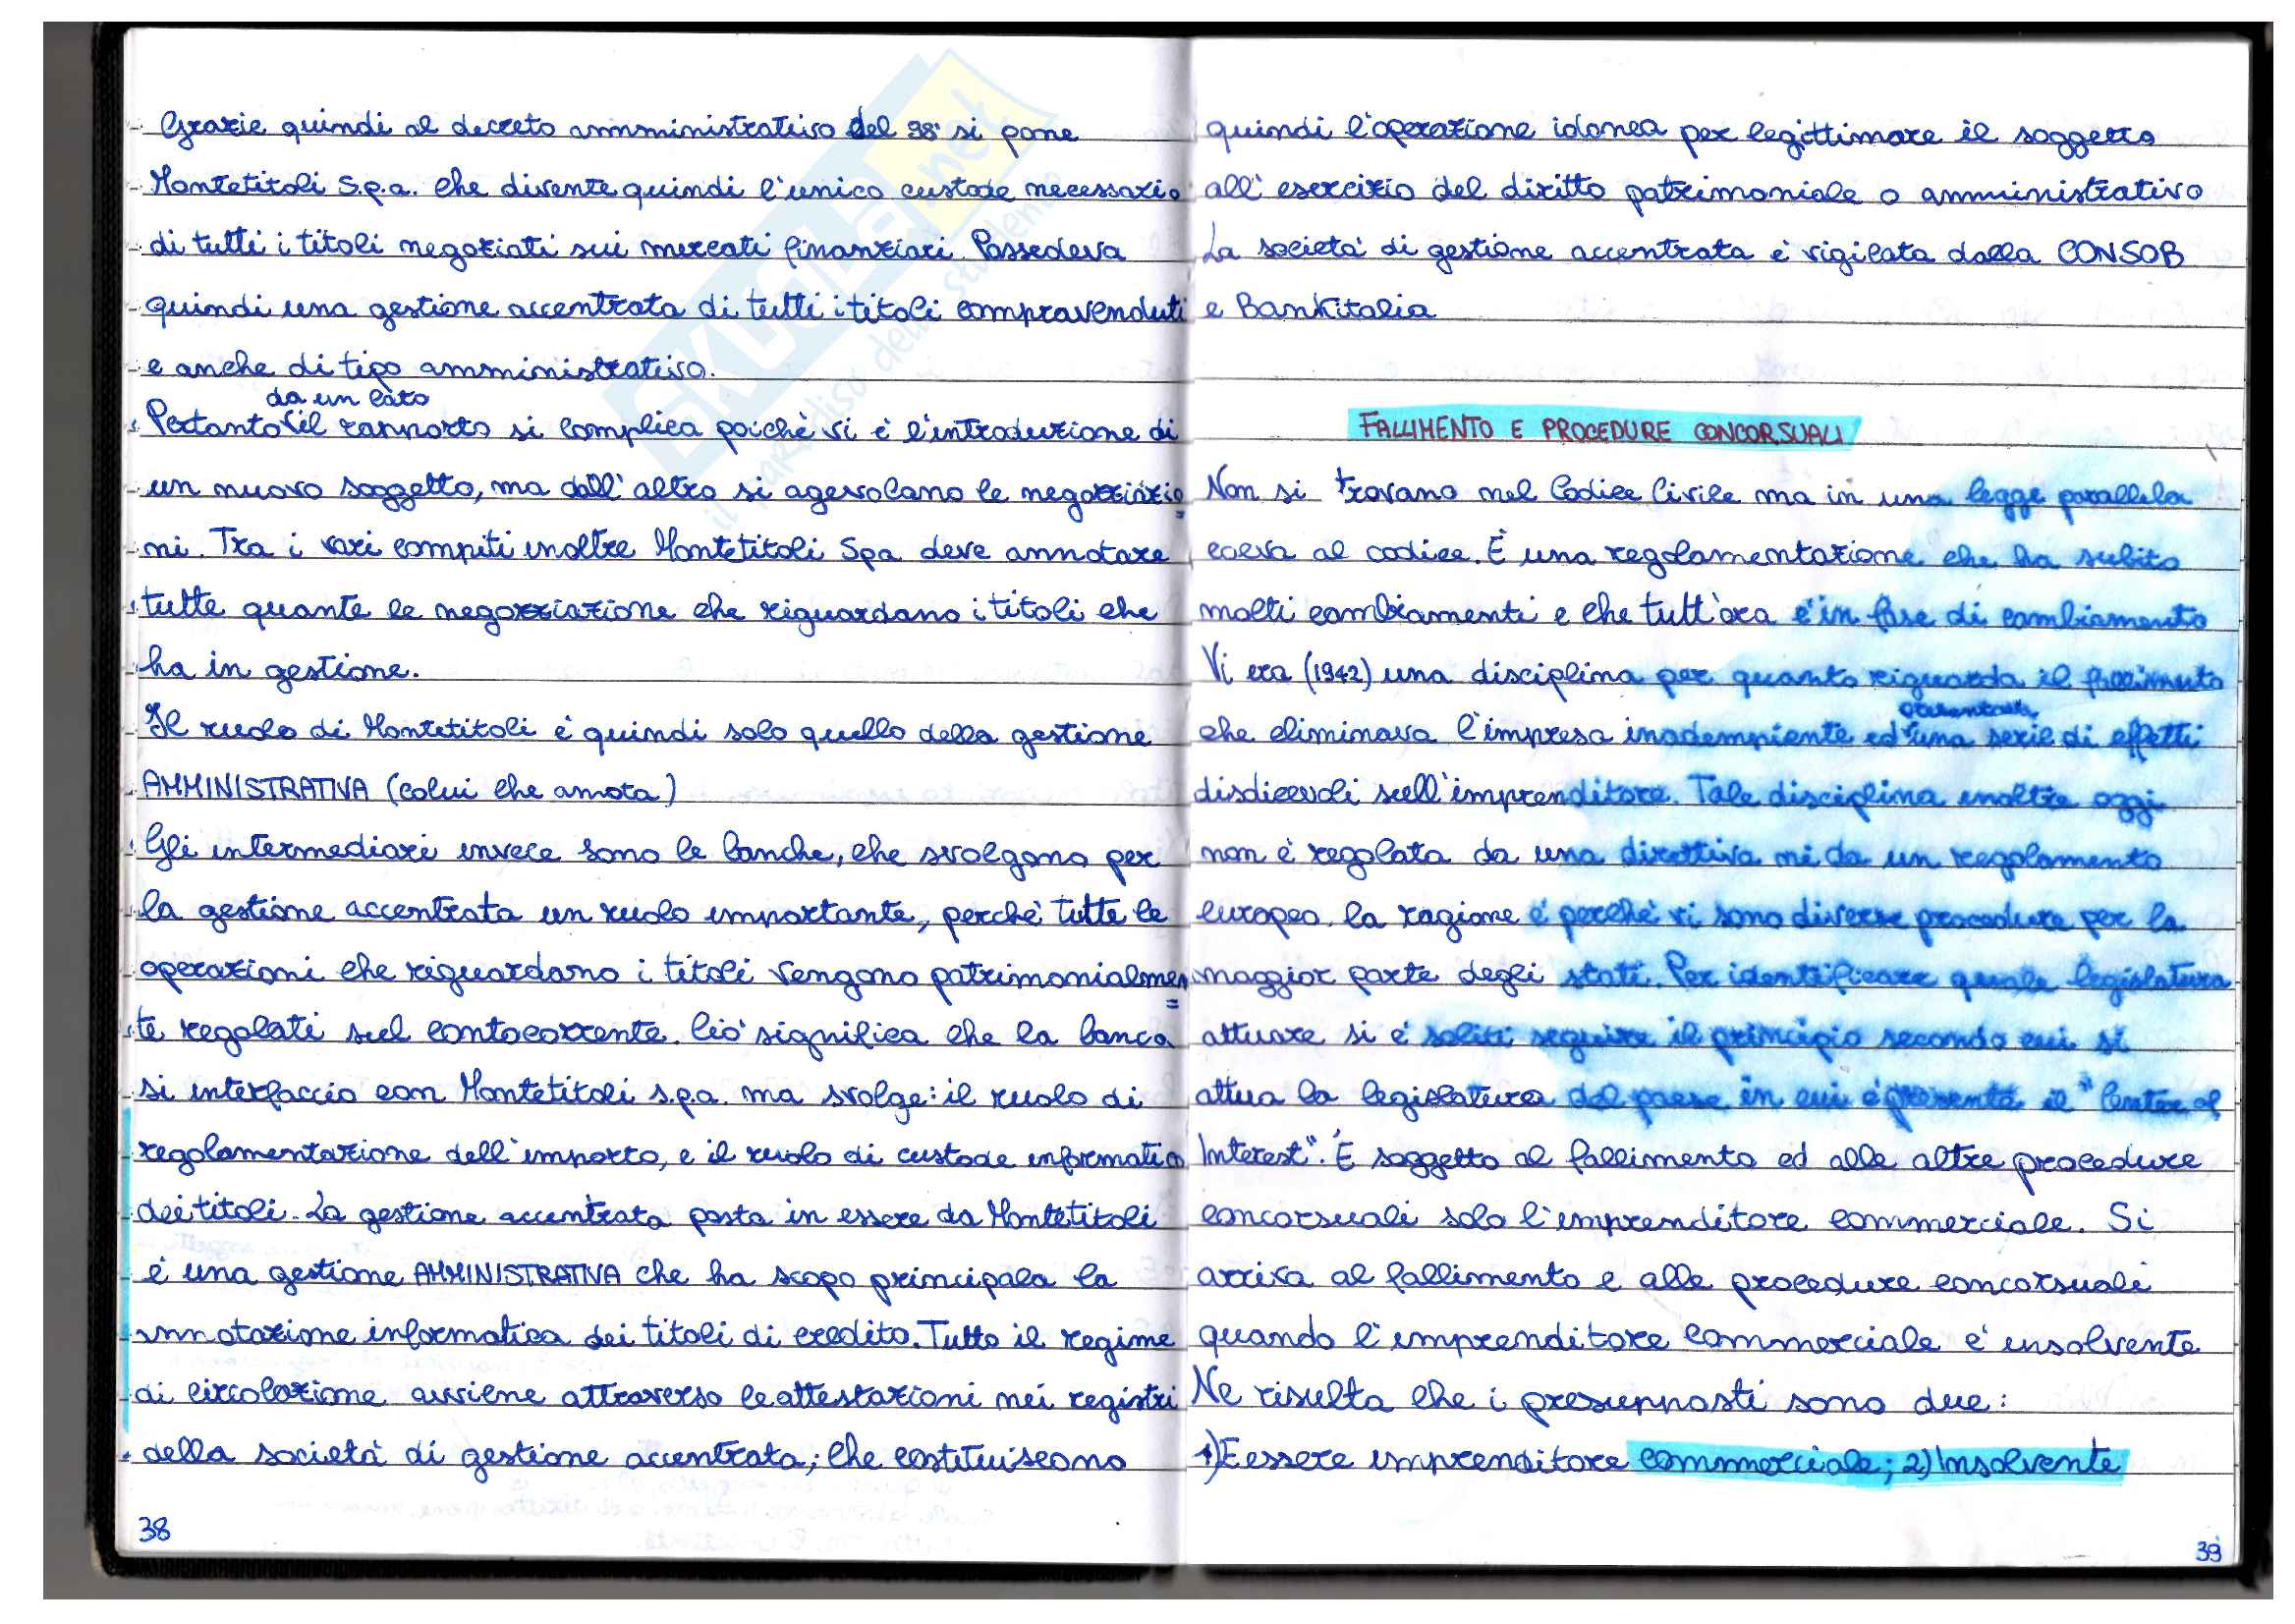 Grazie quindi al decreto ammministrativo del 98' si pone
Montetitoli S.p.a. che divente quindi l'unico custode necessario
di tutti i titoli negoziati sui mercati finanziari. Possedeva
quindi una gestione accentrata di tutti i titoli compravenduti
e anche di tipo amministrativo.
da un lato
Pertanto il rapporto si complica poichè vi è l'introduzione di
un nuovo soggetto, ma dall'altro si agevolano le negozziazio
ni. Tra i vari compiti inoltre Montetitoli Spa deve annotare
tutte quante le negozziazione che riguardano i titoli che
ha in gestione.
Il ruolo di Montetitoli è quindi solo quello della gestione
AMMINISTRATIVA (colui che annota)
Gli intermediari invece sono le banche, che svolgono per
la gestione accentrata un ruolo importante, perchè tutte le
operazioni che riguardano i titoli vengono patrimonialmen=
te regolati sul contocorrente. Ciò significa che la banca
si interfaccia con Montetitoli s.p.a. ma svolge: il ruolo di
regolamentazione dell'importo, e il ruolo di custode informatico
dei titoli. La gestione accentrata posta in essere da Montetitoli
è una gestione AMMINISTRATIVA che ha scopo principale la
annotazione informatica dei titoli di credito. Tutto il regime
di circolazione avviene attraverso le attestazioni nei registri
della società di gestione accentrata; che costituiscono
38
quindi l'operazione idonea per legittimare il soggetto
all'esercizio del diritto patrimoniale o amministrativo
La società di gestione accentrata è vigilata dalla CONSOB
e Bankitalia
FALLIMENTO E PROCEDURE CONCORSUALI
Non si trovano nel Codice Civile ma in una legge parallela
coeva al codice. È una regolamentazione che ha subito
molti cambiamenti e che tutt'ora è in fase di cambiamento
Vi era (1942) una disciplina per quanto riguarda il fallimento
che eliminava l'impresa inadempiente ed una serie di effetti
disdicevoli sull'imprenditore. Tale disciplina inoltre oggi
non è regolata da una direttiva nì da un regolamento
europeo. la ragione è perchè vi sono diverse procedure per la
maggior parte degli stati. Per identificare quale legislatura
attuare si è soliti seguire il principio secondo cui si
attua la legislatura del paese in cui è presente il "Center of
Interest". È soggetto al fallimento ed alle altre procedure
concorsuali solo l'imprenditore commerciale. Si
arriva al fallimento e alle procedure concorsuali
quando l'imprenditore commerciale è insolvente
Ne risulta che i presupposti sono due:
1) Eessere imprenditore commmerciale; 2) Insolvente
39
SKUOLA.net
il paradiso dello studente